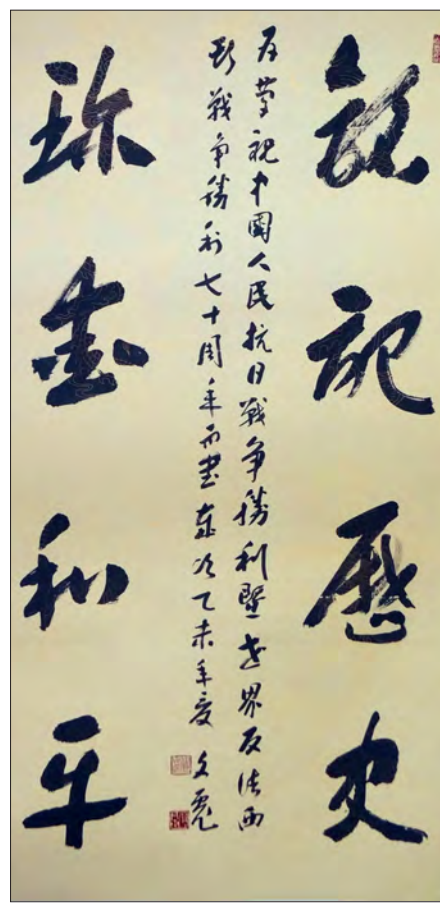 銘記歷史
為慶祝中國人民抗日戰争勝利暨世界反法西
斯戰争勝利七十周年而書歲次乙未年夏 文
珍愛和平